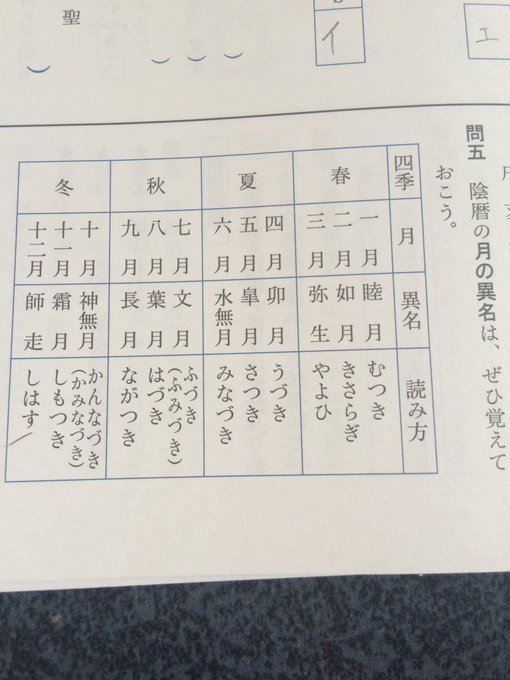 エ
イ
聖
問五 陰暦の月の異名は、ぜひ覚えて
おこう。
四季 月 異名 読み方
春
一月 睦月 むつき
二月 如月 きさらぎ
三月 弥生 やよひ
夏
四月 卯月 うづき
五月 皐月 さつき
六月 水無月 みなづき
秋
七月 文月 ふづき
(ふみづき)
八月 葉月 はづき
九月 長月 ながつき
冬
十月 神無月 かんなづき
(かみなづき)
十一月 霜月 しもつき
十二月 師走 しはす